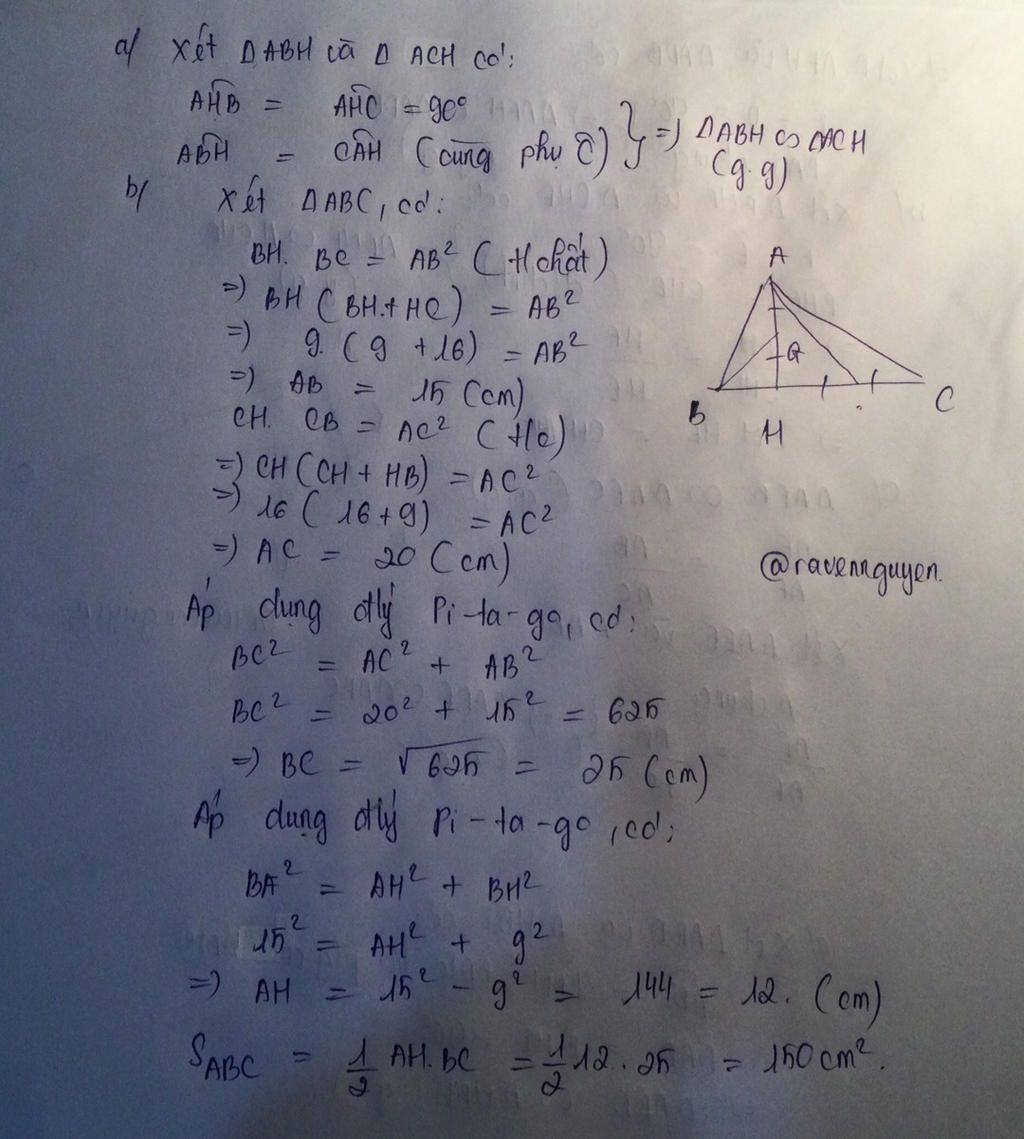 a/ Xét ΔABH và Δ ACH có:
AHB = AHC = 90°
ABH = CAH (cùng phụ C) } => ΔABH ∽ ΔACH
(g.g)
b/ Xét ΔABC, có:
BH. BC = AB² ( t/chất)
=> BH ( BH + HC) = AB²
=> 9. ( 9 + 16) = AB²
=> AB = 15 (cm)
CH. CB = AC² ( t/c)
=> CH ( CH + HB) = AC²
=> 16 ( 16 + 9) = AC²
=> AC = 20 (cm)
Áp dụng đlý Pi-ta-go, có:
BC² = AC² + AB²
BC² = 20² + 15² = 625
=> BC = √625 = 25 (cm)
Áp dụng đlý Pi-ta-go, có:
BA² = AH² + BH²
15² = AH² + 9²
=> AH = 15² - 9² = 144 = 12. (cm)
S_ABC = 1/2 AH.BC = 1/2 12.25 = 150cm².
A
G
B
H
C
@ravennguyen.